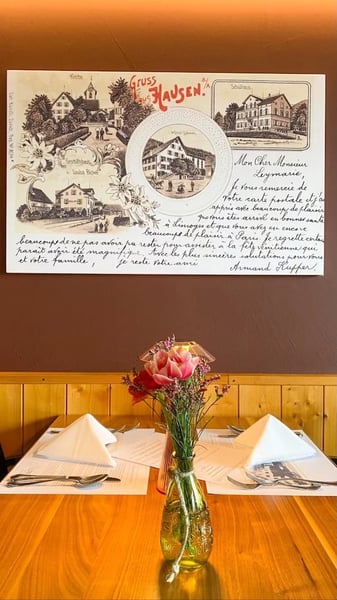 Kirche
Gruss
aus HAUSEN. a/A
Schulhaus
Mon Cher Monsieur
Leymarie,
Je vous remercie de
votre carte postale et j'ai
appris avec beaucoup de plaisir
que vous êtes arrivé en bonne santé
à Limoges et que vous avez eu encore
beaucoup de plaisir à Paris. Je regrette enten
beaucoup de ne pas avoir pu reste pour assister à la fête vénitienne qui
parait avoir été magnifique. Avec les plus sincères salutations pour vous
et votre famille, je reste votre ami
Armand Kupper.